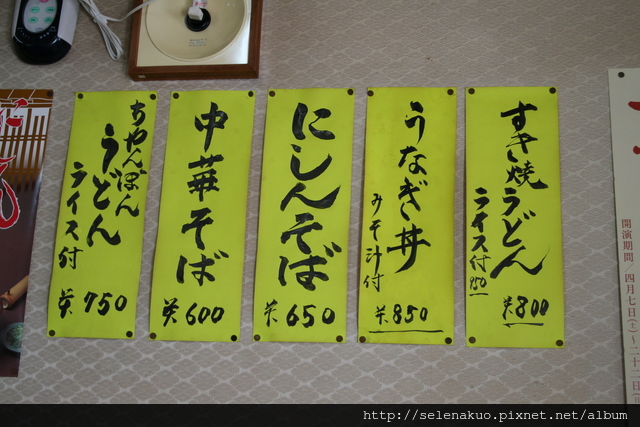 すき焼うどん
ライス付950
¥800
うなぎ丼
みそ汁付
¥850
にしんそば
¥650
中華そば
¥600
ちゃんぽん
うどん
ライス付
¥750
開演期間 四月七日(土)～二十二日(日)
http://selenakuo.pixnet.net/album